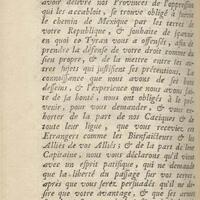 avoir délivré nos Provinces de l'oppression
qui les accabloit, se trouve obligé à suivre
le chemin de Mexique par les terres de
votre Republique, & souhaite de sçavoir
en quoi ce Tyran vous a offensés, afin de
prendre la défense de votre droit comme du
sien propre, & de la mettre entre les au-
tres sujets qui justifient ses prétentions. La
connoissance que nous avons de ses bons
desseins, & l'experience que nous avons fai-
te de sa bonté, nous ont obligé à le pré-
venir, pour vous demander, & vous ex-
horter de la part de nos Caciques & de
toute leur ligue, que vous receviez ces
Etrangers comme les Bienfaicteurs & les
Alliés de vos Alliés; & de la part de leur
Capitaine, nous vous déclarons qu'il vient
avec un esprit pacifique, qui ne demande
que la liberté du passage sur vos terres,
après que vous serez persuadés qu'il ne dé-
sire que votre avantage, & que ses armes